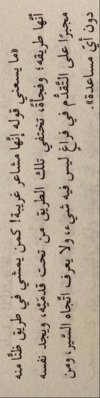 «ما يسعني قوله إنّها مشاعر غريبة! كمن يمشي في طريق ظنًّا منه
أنّها طريقه؛ وفجأةً، تختفي تلك الطريق من تحت قدمَيْه، ويجد نفسه
مجبرًا على التّقدّم في فراغ ليس فيه شيء، ولا يعرف اتّجاه السّير، ومن
دون أيّ مساعدة».